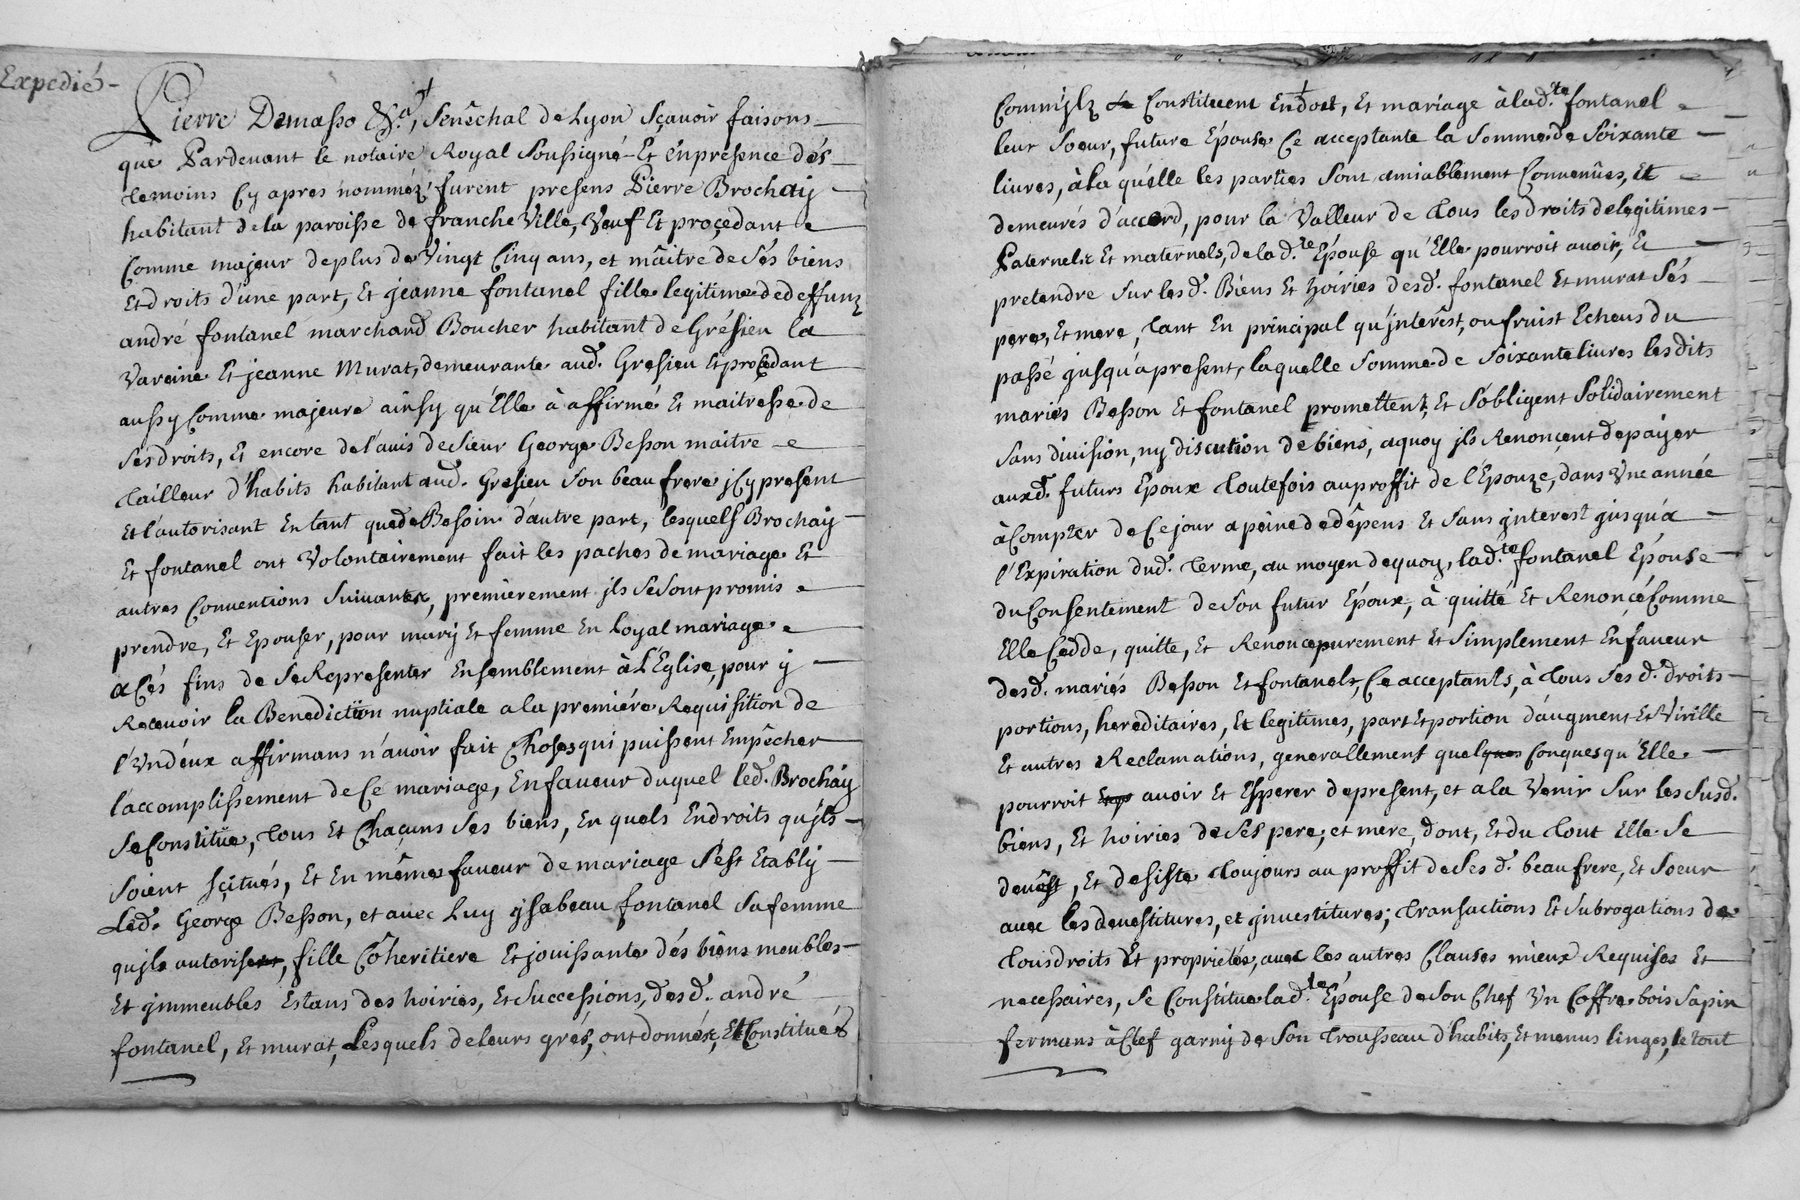 Expedié-
Pierre Demasso &c.a, Senêchal de Lyon sçavoir faisons
que Pardevant le notaire Royal soussigné Et en presence dés
temoins cy apres nomméz furent presens Pierre Brochay
habitant de la paroisse de francheville, veuf Et procedant
comme majeur de plus de vingt cinq ans, et mâitre de sés biens
Et droits d'une part, Et jeanne fontanel fille legitime de deffunz
andré fontanel marchand Boucher habitant de Grésieu la
varaine Et jeanne Murat, demeurante aud. Gresieu Et procedant
aussy comme majeure ainsy qu'Elle à affirmé Et maitresse de
ses droits, Et encore de l'avis de sieur George Besson maitre
tailleur d'habits habitant aud. Gresieu son beau frere jcy present
Et l'autorisant En tant que de Besoin d'autre part, lesquels Brochay
Et fontanel ont volontairement fait les paches de mariage Et
autres conventions suivantes, premièrement jls se sont promis
prendre, Et Epouser, pour mary Et femme En loyal mariage
a cés fins de se Representer Ensemblement à l'Eglise, pour y
Recevoir la Benediction nuptiale a la premiére Requisition de
l'un d'eux affirmans n'avoir fait choses qui puissent Empêcher
l'accomplissement de ce mariage, En faveur duquel led. Brochay
se constitue, tous Et chacuns ses biens, En quels Endroits qu'jls
soient sçitués, Et En même faveur de mariage s'est Etably
led. George Besson, et avec luy ysabeau fontanel sa femme
qu'jl autorise, fille cóheritiere Et jouissante dés biens meubles
Et jmmeubles Estans des hoiries, Et successions, desd. andré
fontanel, Et murat, Lesquels de leurs grés, ont donnés, Et constitués
comm'jlz constituent En dot, Et mariage à lad.te fontanel
leur soeur, future Epouse ce acceptante la somme de soixante
livres, à la qu'elle les parties sont amiablement convenûes, Et
demeurés d'accord, pour la valleur de tous les droits de legitimes
Paternels Et maternels, de lad.te Epouse qu'Elle pourroit avoir, Et
pretendre sur lesd. Biens Et hoiries desd. fontanel Et murat sés
pere, Et mere, tant En principal qu'jnterêst, ou fruist Echeus du
passé jusqu'a present, laquelle somme de soixante livres lesdits
mariés Besson Et fontanel promettent, Et s'obligent solidairement
sans division, ny discution de biens, a quoy jls Renonçent de payer
auxd. futurs Epoux toutefois au proffit de l'Epouze, dans vne année
à compter de ce jour a peine de dêpens Et sans jnterest jusqu'a
l'Expiration dud. terme, au moyen de quoy, lad.te fontanel Epouse
du consentement de son futur Epoux, à quitté Et Renoncé comme
Elle cedde, quitte, Et Renonce purement Et simplement En faveur
desd. mariés Besson Et fontanel, ce acceptants, à tous ses d. droits
portions, hereditaires, Et legitimes, part Et portion d'augment Et virille
Et autres Reclamations, generallement quelconques qu'Elle
pourroit avoir Et Esperer de present, et a la venir sur les susd.
biens, Et hoiries de ses pere, et mere, dont, Et du tout Elle se
devêst, Et desiste toujours au proffit de ses d. beau frere, Et soeur
avec les devestitures, et jnvestitures; transactions Et subrogations de
tous droits Et proprietés, avec les autres clauses mieux Requises Et
necessaires, se constitue lad.te Épouse de son chef un coffre bois sapin
fermans à clef garny de son trousseau d'habits, Et menus linges, le tout